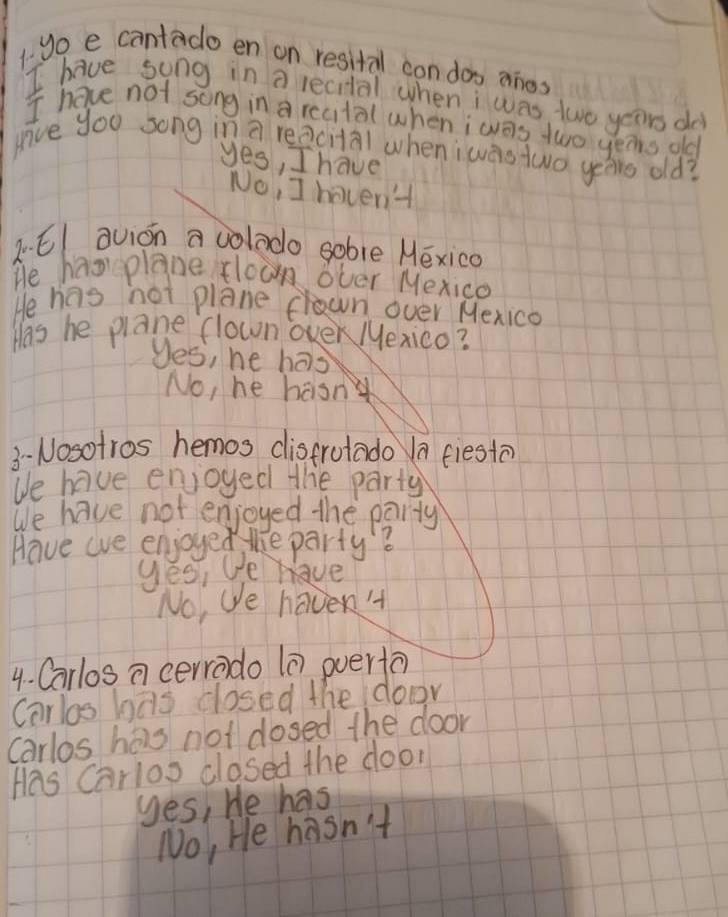 1.- yo e cantado en un resital con dos años
I have sung in a recital when i was two years old
I have not song in a recital when i was two years old
Have you song in a reacital when i was two years old?
Yes, I have
No, I haven't
2.- El avión a volado sobre México
He has plane flown over Mexico
He has not plane flown over Mexico
Has he plane flown over Mexico?
Yes, he has
No, he hasn't
3- Nosotros hemos disfrutado la fiesta
We have enjoyed the party
We have not enjoyed the party
Have we enjoyed the party?
yes, We have
No, We haven't
4.- Carlos a cerrado la puerta
Carlos has closed the door
Carlos has not closed the door
Has Carlos closed the door
yes, He has
No, He hasn't